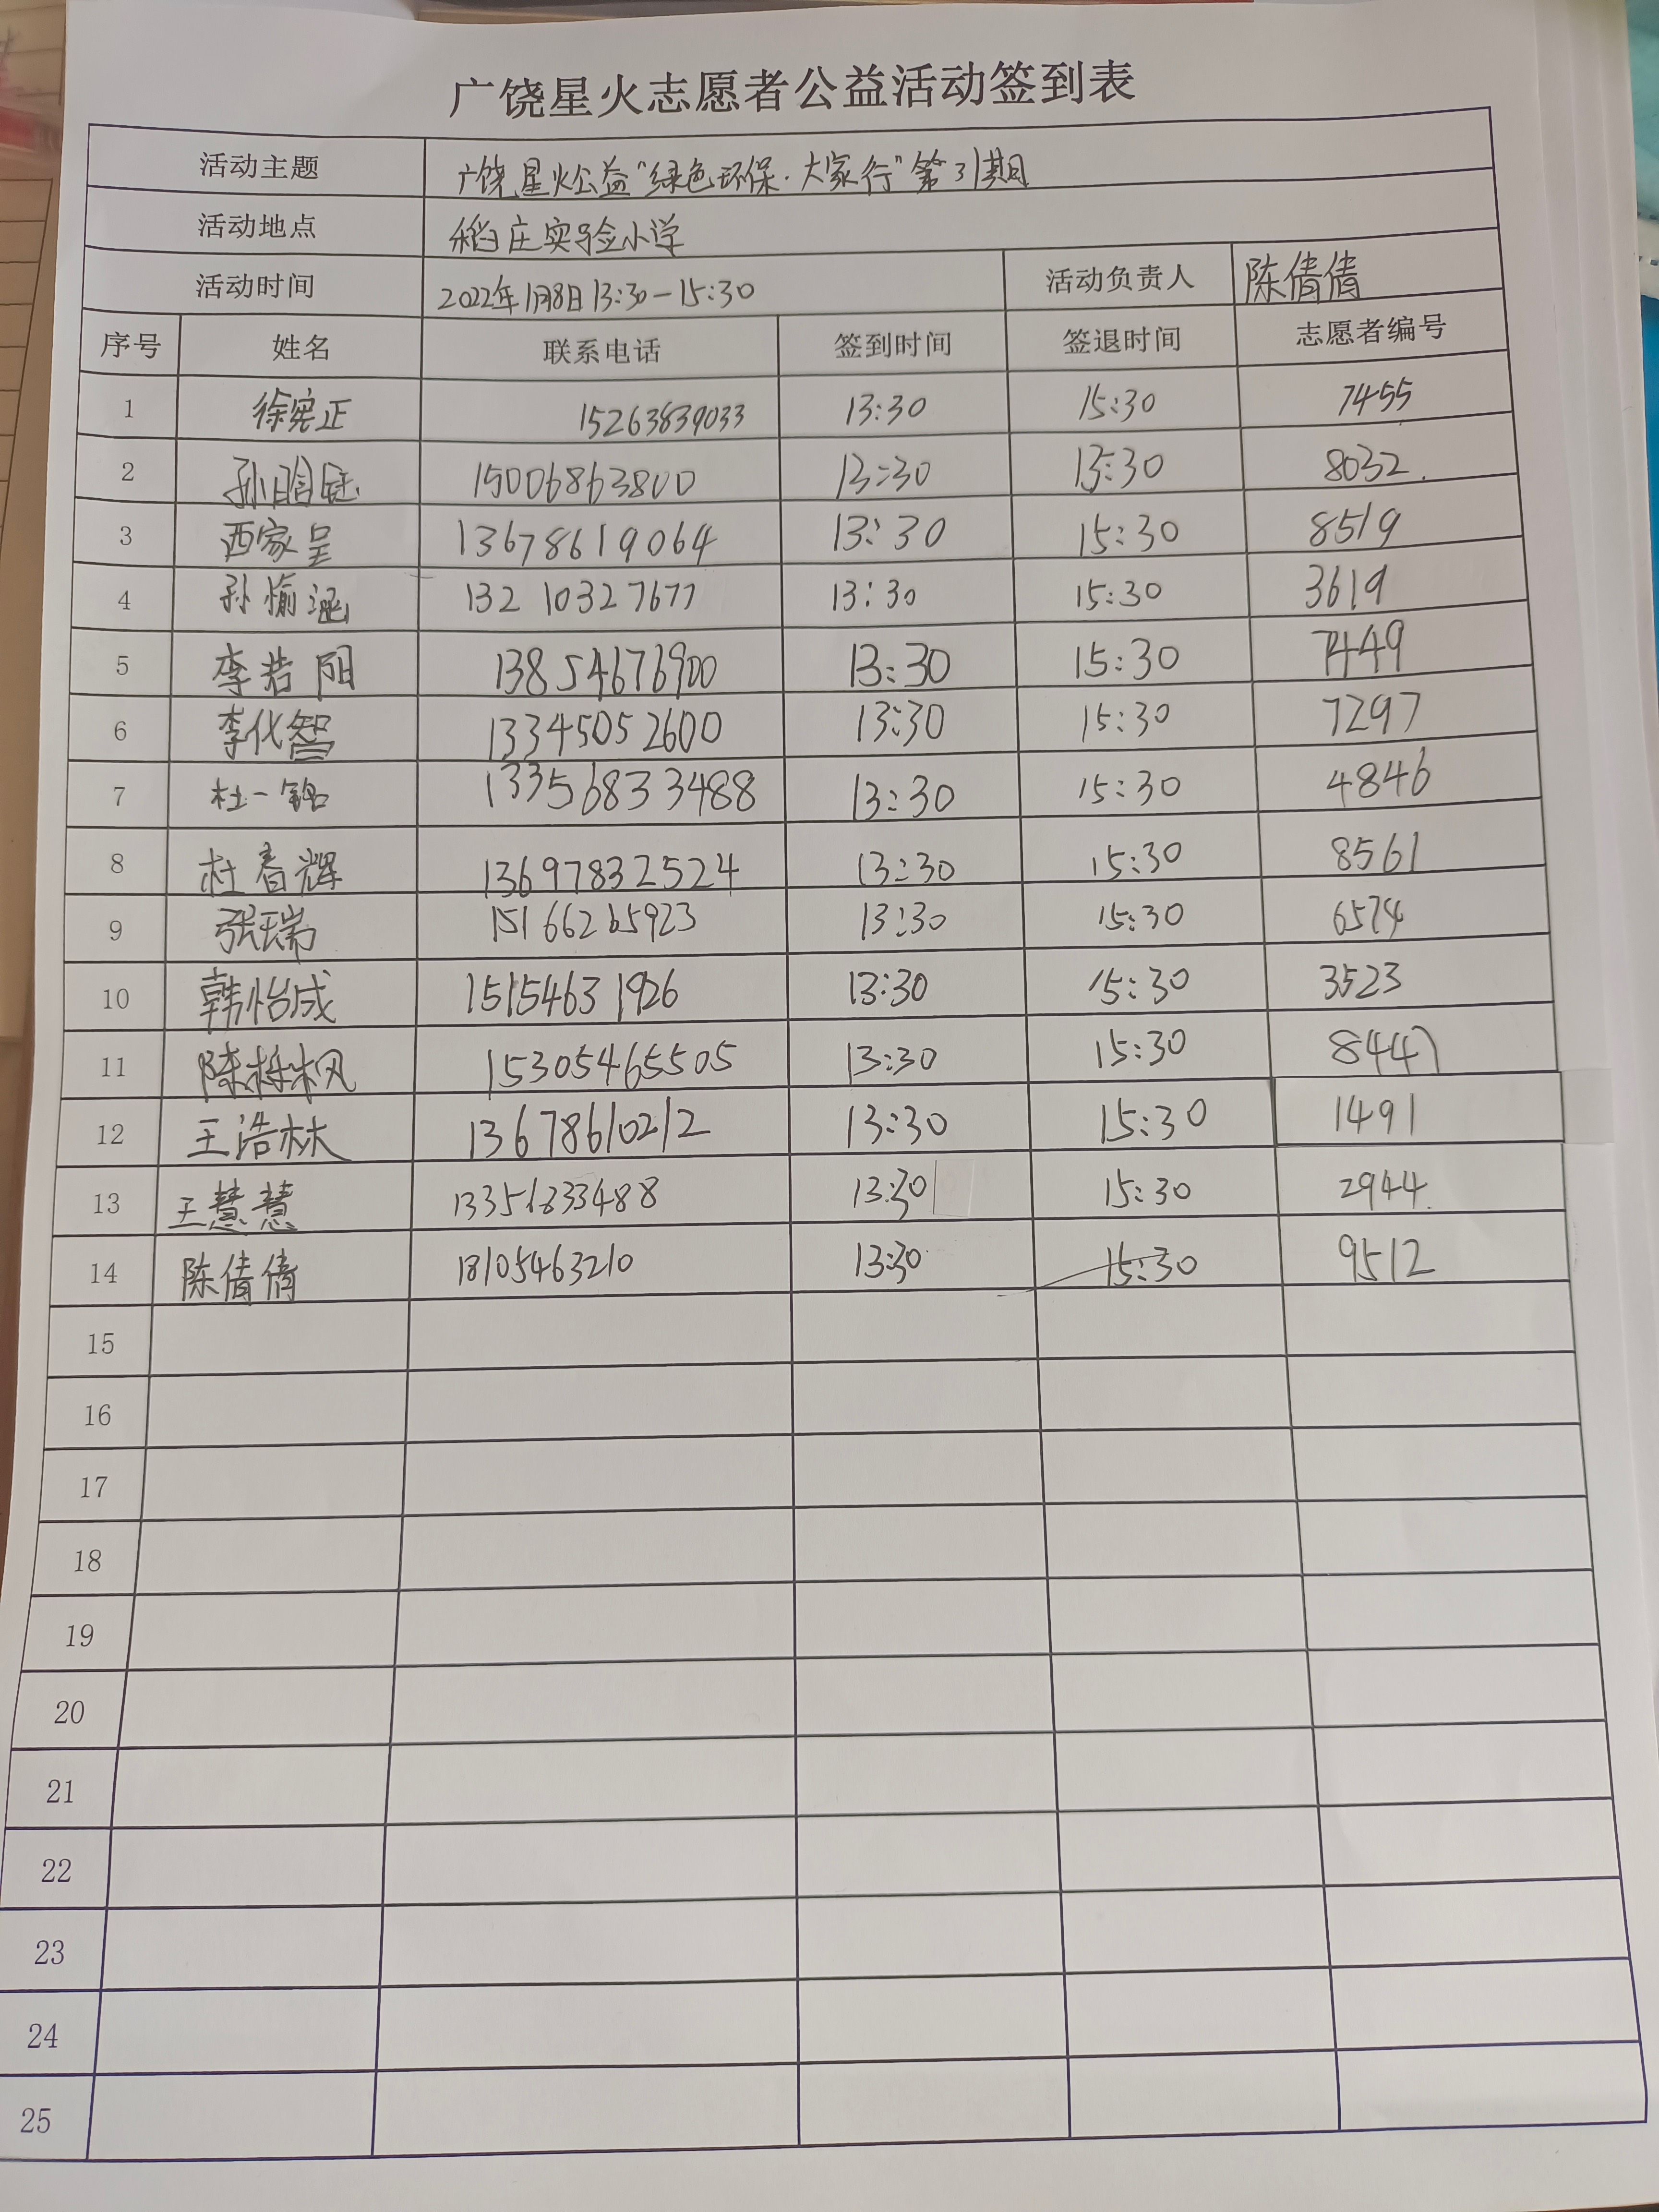 广饶星火志愿者公益活动签到表
活动主题 广饶星火公益“绿色环保·大家行”第31期
活动地点 稻庄实验小学
活动时间 2022年1月8日13:30-15:30 活动负责人 陈倩倩
序号 姓名 联系电话 签到时间 签退时间 志愿者编号
1 徐宪正 15263839033 13:30 15:30 7455
2 15006863800 13:30 15:30 8032
3 西家呈 13678619064 13:30 15:30 8519
4 孙愉涵 13210327677 13:30 15:30 3619
5 李若阳 13854676900 13:30 15:30 7449
6 李化智 13345052600 13:30 15:30 7297
7 杜一铭 13356833488 13:30 15:30 4846
8 杜春辉 13697832524 13:30 15:30 8561
9 张瑞 15166265923 13:30 15:30 6574
10 韩怡成 15154631926 13:30 15:30 3523
11 陈栎枫 15305465505 13:30 15:30 8447
12 王浩林 13678610212 13:30 15:30 1491
13 王慧慧 13:30 15:30 2944
14 陈倩倩 18105463210 13:30 15:30 9512
15
16
17
18
19
20
21
22
23
24
25